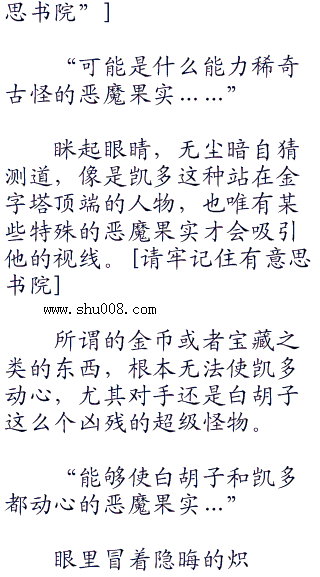 思书院”]
“可能是什么能力稀奇
古怪的恶魔果实……”
眯起眼睛，无尘暗自猜
测道，像是凯多这种站在金
字塔顶端的人物，也唯有某
些特殊的恶魔果实才会吸引
他的视线。[请牢记住有意思
书院]
www.shu008.com
所谓的金币或者宝藏之
类的东西，根本无法使凯多
动心，尤其对手还是白胡子
这么个凶残的超级怪物。
“能够使白胡子和凯多
都动心的恶魔果实…”
眼里冒着隐晦的炽